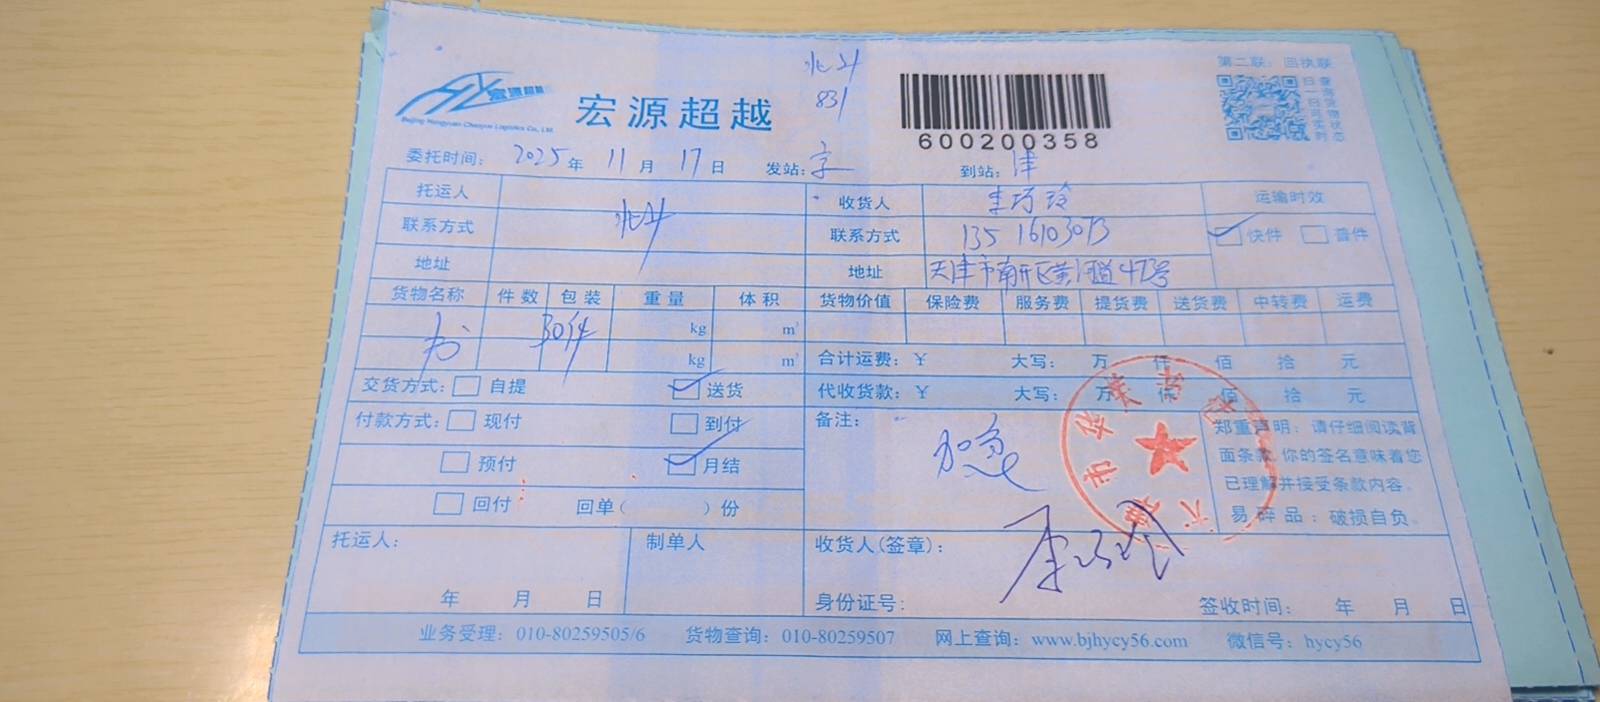 北斗
831
第二联：回执联
宏源超越
Beijing Hongyuan Chaoyue Logistics Co., Ltd.
宏源超越
600200358
扫一扫可实时
查询货物状态
委托时间： 2025 年 11 月 17 日 发站：京 到站：津
托运人 收货人 李巧玲 运输时效
联系方式 北斗 联系方式 13516103073 快件 普件
地址 地址 天津市南开区黄河道473号
货物名称 件数 包装 重量 体积 货物价值 保险费 服务费 提货费 送货费 中转费 运费
书 30件 kg m³
kg m³ 合计运费：￥ 大写： 万 仟 佰 拾 元
交货方式： 自提 送货 代收货款：￥ 大写： 万 仟 佰 拾 元
付款方式： 现付 到付 备注： 加急
预付 月结
回付 回单（ ）份
郑重声明：请仔细阅读背
面条款,你的签名意味着您
已理解并接受条款内容。
易碎品：破损自负。
托运人： 制单人 收货人(签章)： 李巧玲
年 月 日 身份证号： 签收时间： 年 月 日
业务受理：010-80259505/6 货物查询：010-80259507 网上查询：www.bjhycy56.com 微信号：hycy56